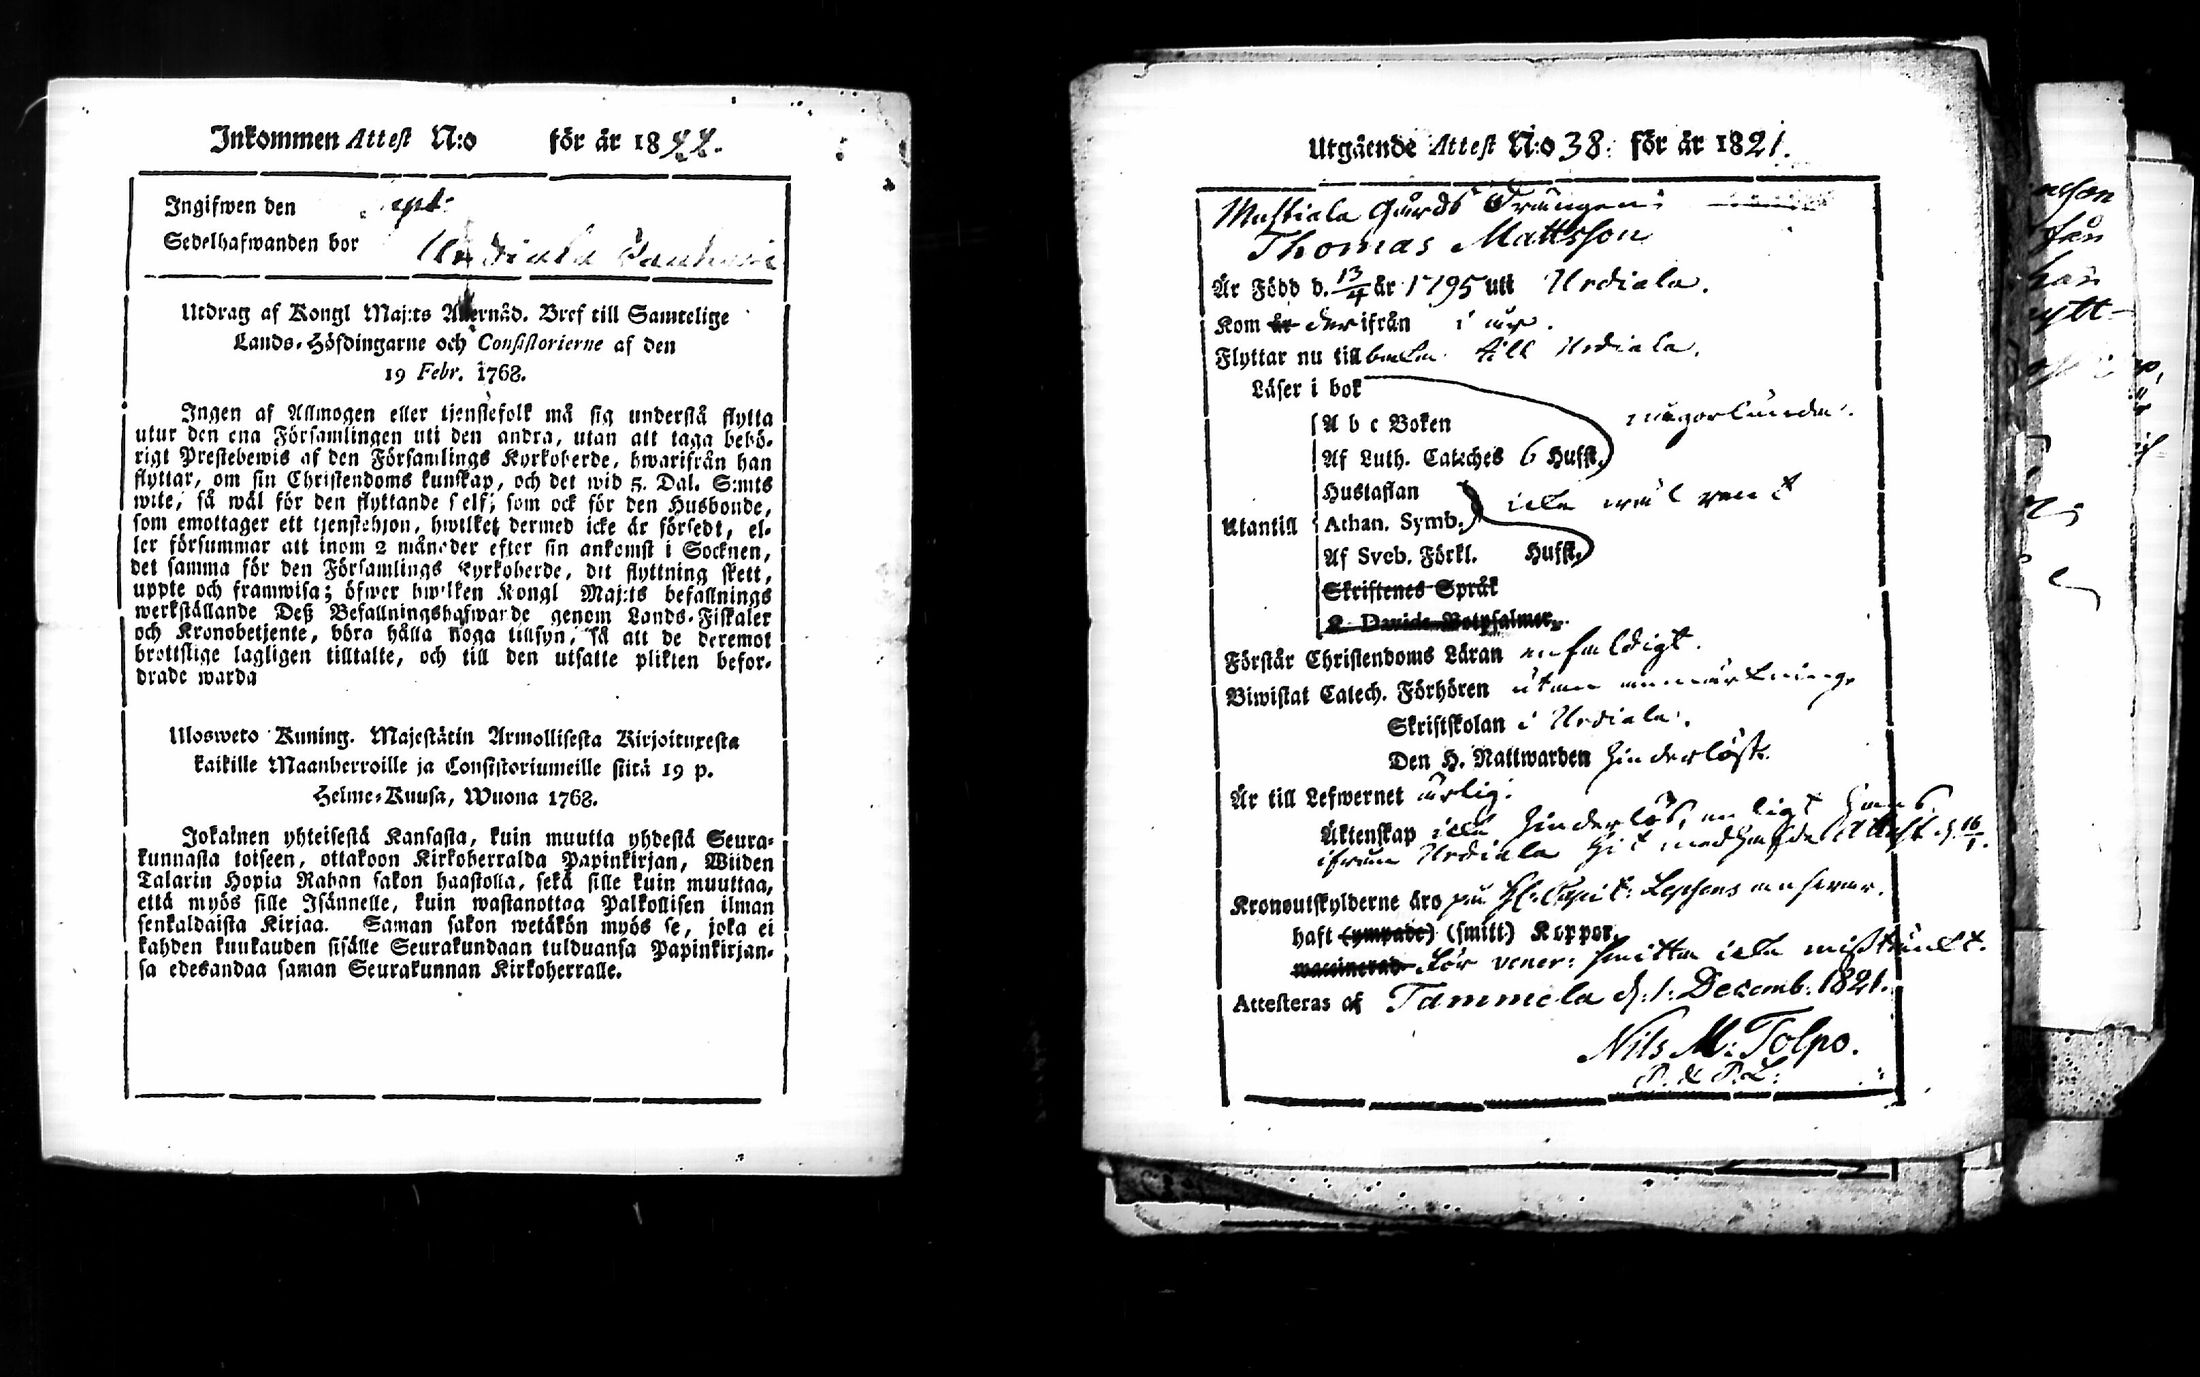 Inkommen Attest N:o för år 1822.
Ingifwen den Sept:
Sedelhafwanden bor Urdiala
Utdrag af Kongl Maj:ts Allernåd. Bref till Samtelige
Lands-Höfdingarne och Consistorierne af den
19 Febr. 1768.
Ingen af Allmogen eller tjenstefolk må sig understå flytta
utur den ena Församlingen uti den andra, utan att taga behö-
rigt Prestebewis af den Församlings Kyrkoherde, hwarifrån han
flyttar, om sin Christendoms kunskap, och det wid 5. Dal. S:mts
wite, så wäl för den flyttande self, som ock för den Husbonde,
som emottager ett tjenstehjon, hwilket dermed icke är försedt, el-
ler försummar att inom 2 månader efter sin ankomst i Socknen,
det samma för den Församlings Kyrkoherde, dit flyttning skett,
uppte och framwisa; öfwer hwilken Kongl Maj:ts befallnings
werkställande Deß Befallningshafwande genom Lands-Fiskaler
och Kronobetjente, böra hålla noga tillsyn, så att de deremot
brottslige lagligen tilltalte, och till den utsatte plikten befor-
drade warda
Ulosweto Kuning. Majestätin Armollisesta Kirjoituxesta
kaikille Maanherroille ja Consistoriumeille siitä 19 p.
Helme-Kuusa, Wuona 1768.
Jokainen yhteisestä Kansasta, kuin muutta yhdestä Seura-
kunnasta toiseen, ottakoon Kirkoherralda Papinkirjan, Wiiden
Talarin Hopia Rahan sakon haastolla, sekä sille kuin muuttaa,
että myös sille Isännelle, kuin wastanottaa Palkollisen ilman
senkaldaista Kirjaa. Saman sakon wetäkön myös se, joka ei
kahden kuukauden sisälle Seurakundaan tulduansa Papinkirjan-
sa edesandaa saman Seurakunnan Kirkoherralle.
Utgående Attest N:o 38. för år 1821.
Mustiala Gårds Drängen:
Thomas Mattsson
Är Född d. 13/4 år 1795 uti Urdiala.
Kom är derifrån i år.
Flyttar nu till baka till Urdiala.
Läser i bok
A b c Boken någorlunda.
Af Luth. Cateches 6 Hufst.
Hustaflan icke wäl rent
Utantill Athan. Symb.
Af Sveb. Förkl. Hufst.
Skriftenes Språk
D. Davids Botpsalmer.
Förstår Christendoms Läran enfaldigt.
Biwistat Catech. Förhören utan anmärkning,
Skriftskolan i Urdiala.
Den H. Nattwarden hinderlöst.
Är till Lefwernet ärlig:
Äktenskap icke hinderlös, enligt hans
ifrån Urdiala hit medhafde Attest d. 16/1.
Kronoutskylderne äro på Hr Capit: answar.
haft (ympade) (smitt) Koppor,
waccinerad för vener: smitta icke mißtänkt.
Attesteras af Tammela d. 1. Decemb. 1821.
Nils M: Tolpo.
P. & P.L: